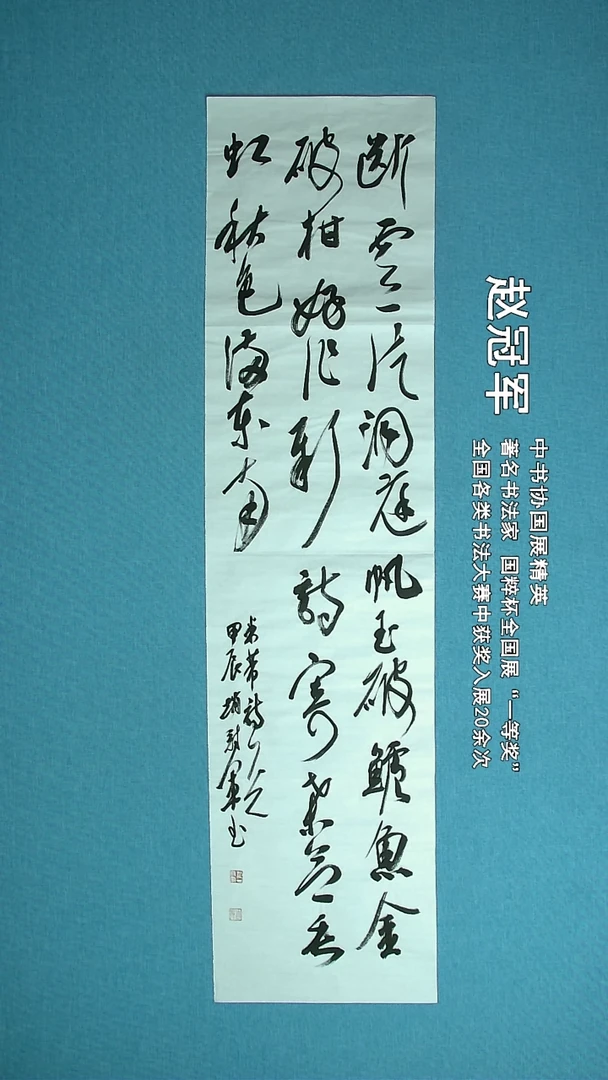 断雲一片洞庭帆玉破鱸魚金
破柑好作新詩寄桑苎垂
虹秋色満東南
米芾詩一首
甲辰趙冠軍书
赵冠军
中书协国展精英
著名书法家 国粹杯全国展“一等奖”
全国各类书法大赛中获奖入展20余次